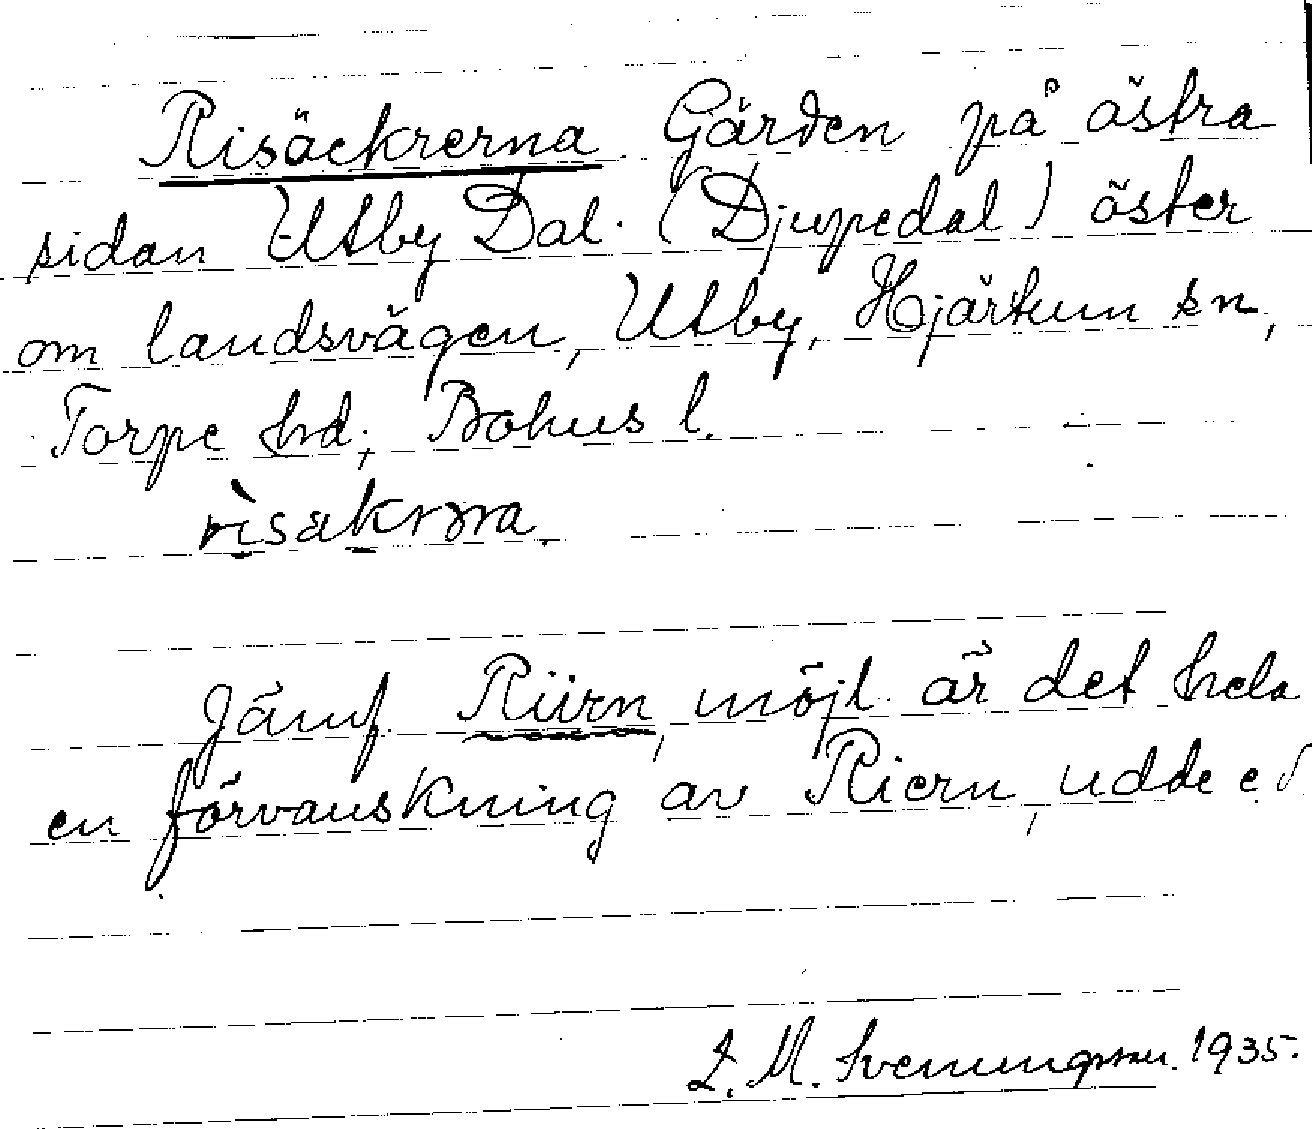 Risäckrerna Gärden på östra
sidan Utby Dal. (Djupedal) öster
om landsvägen, Utby, Hjärtum sn,
Torpe hd; Bohus l.
risakrna.
Jämf. Riirn, möjl. är det hela
en förvanskning av Riern, udde e d
L. M. Svenungsson. 1935.